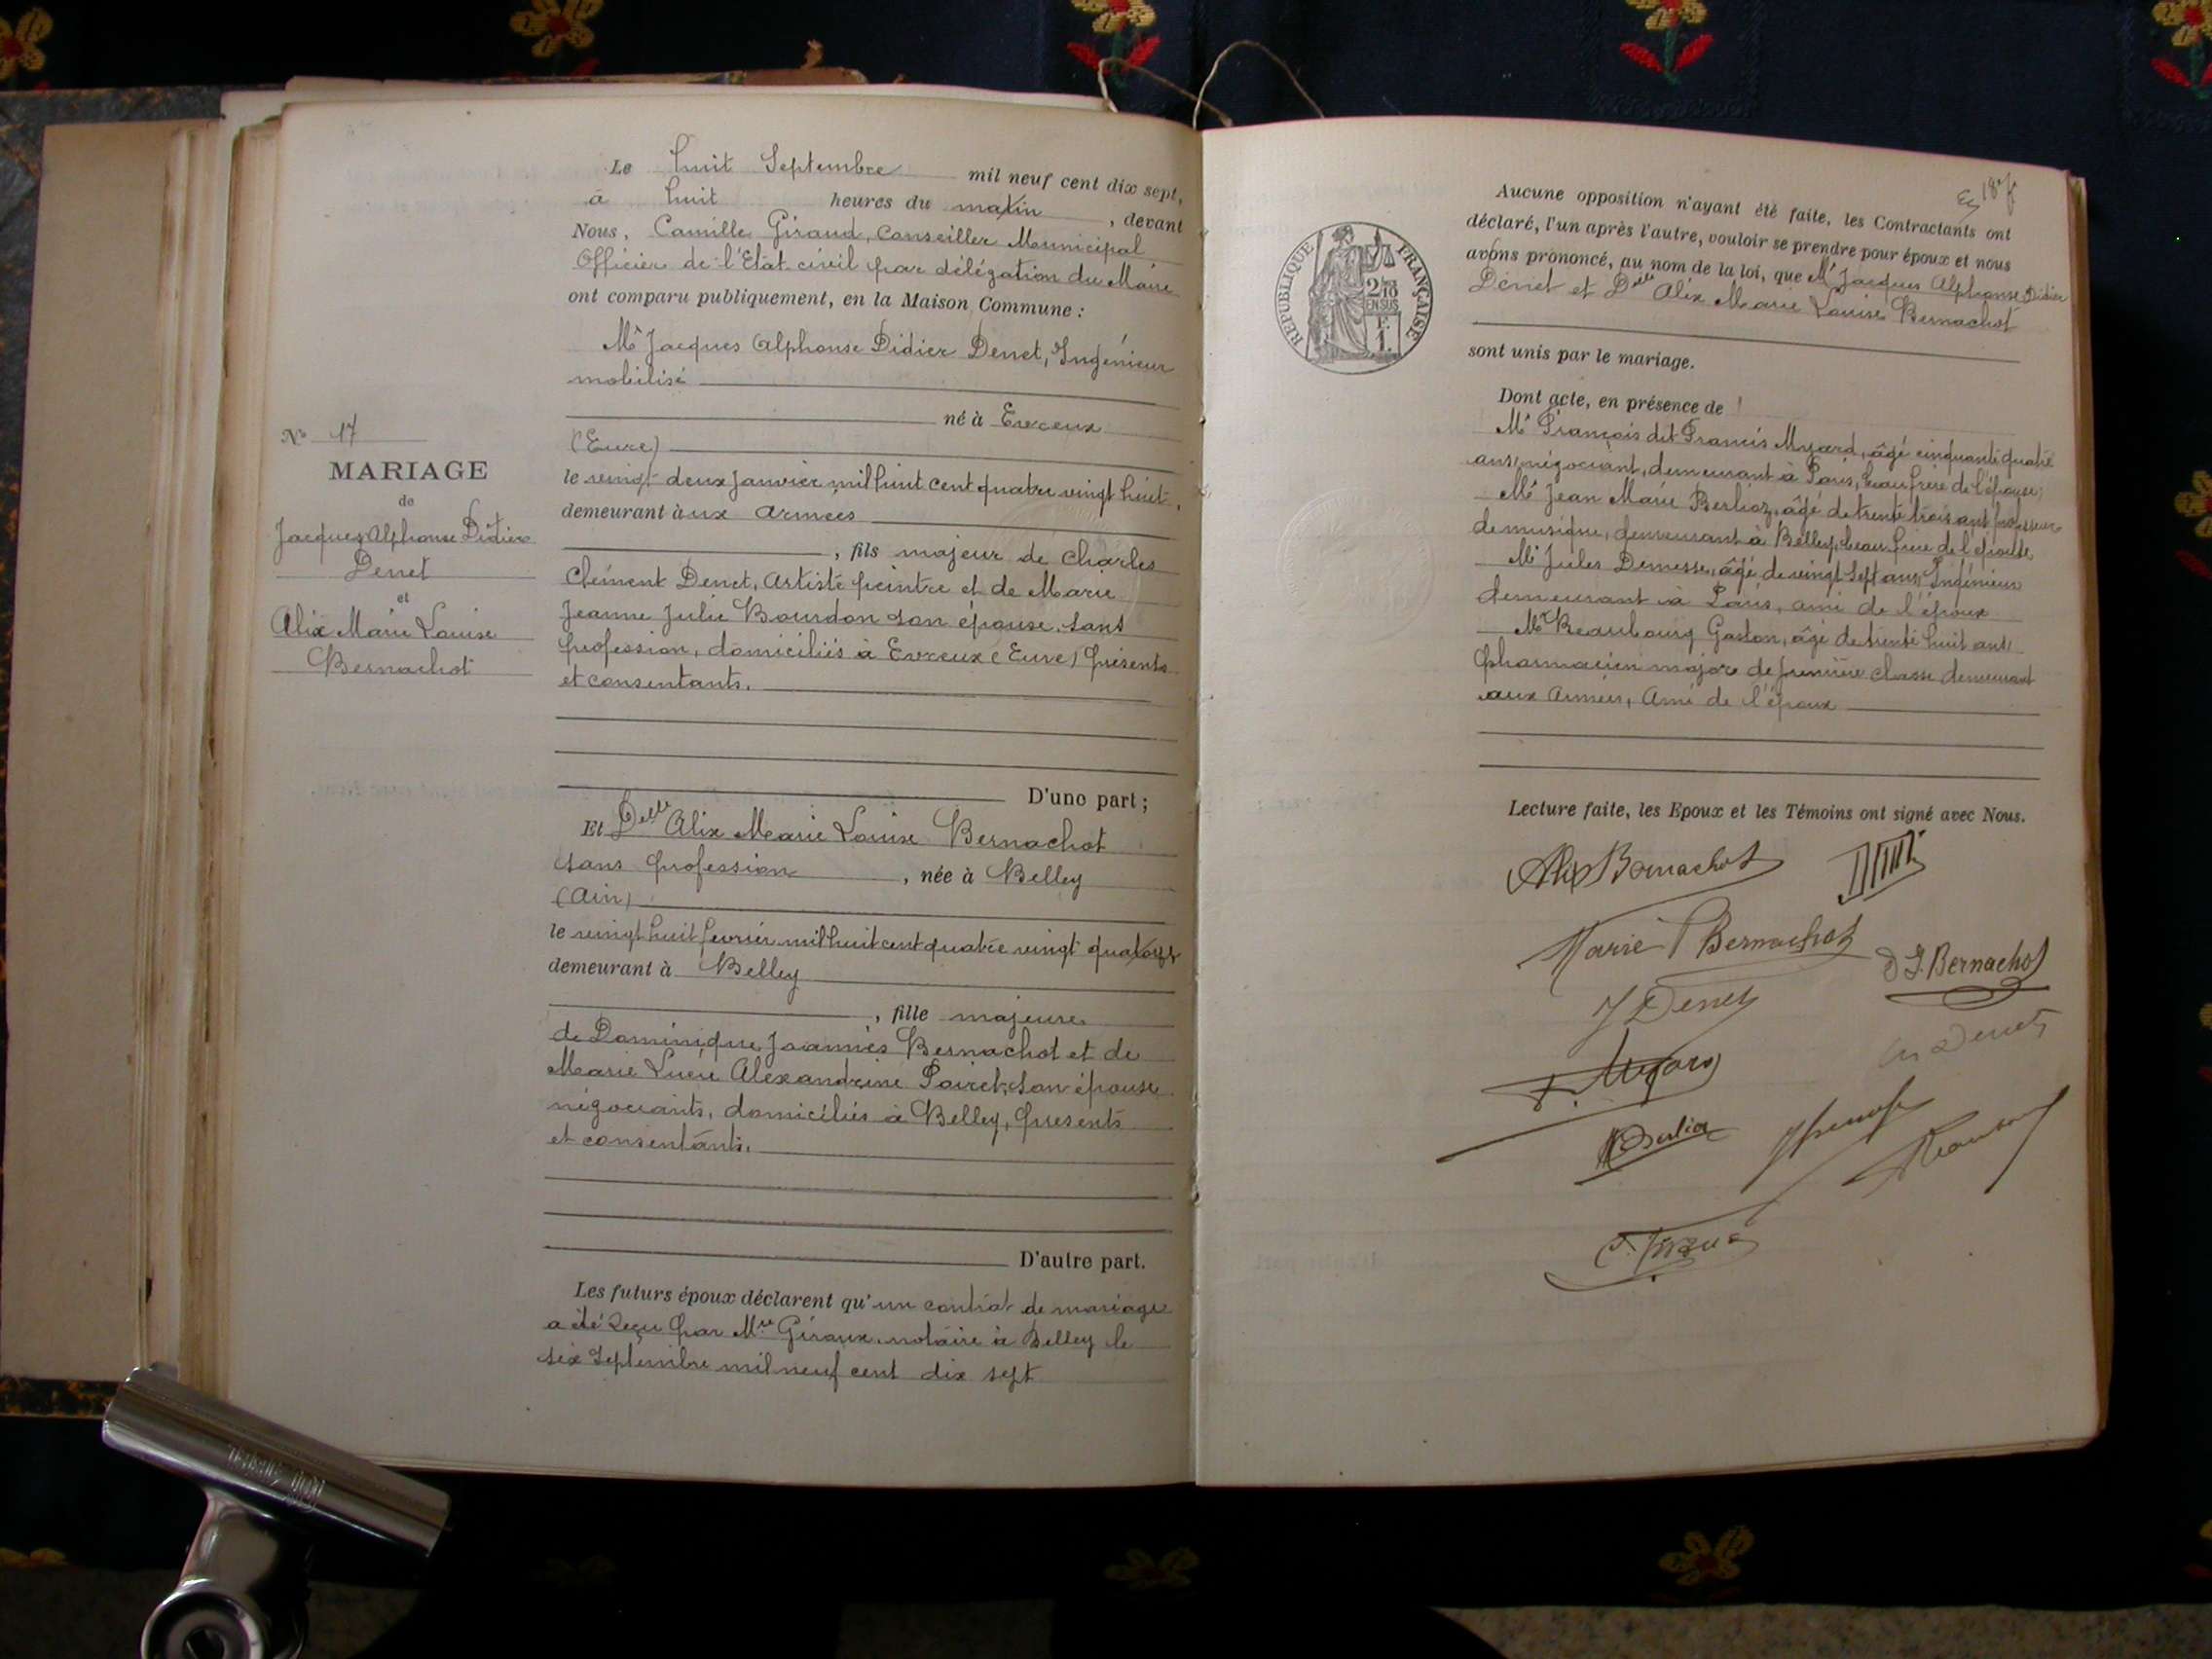 Le huit Septembre mil neuf cent dix sept,
à huit heures du matin, devant
Nous, Camille Giraud, Conseiller Municipal
Officier de l'Etat civil par délégation du Maire
ont comparu publiquement, en la Maison Commune :
Mr Jacques Alphonse Didier Denet, Ingénieur
mobilisé
né à Evreux
(Eure)
le vingt deux Janvier mil huit cent quatre vingt huit,
demeurant aux armées
, fils majeur de Charles
Clément Denet, Artiste peintre et de Marie
Jeanne Julie Bourdon son épouse, sans
profession, domiciliés à Evreux (Eure) présents
et consentants.
D'une part ;
Et Delle Alix Marie Louise Bernachot
sans profession, née à Belley
(Ain)
le vingt huit février mil huit cent quatre vingt quatorze
demeurant à Belley
, fille majeure
de Dominique Joannès Bernachot et de
Marie Lucie Alexandrine Poiret, son épouse
négociants, domiciliés à Belley, présents
et consentants.
D'autre part.
Les futurs époux déclarent qu'un contrat de mariage
a été reçu par Mre Giraux, notaire à Belley le
six Septembre mil neuf cent dix sept
No 17
MARIAGE
de
Jacques Alphonse Didier
Denet
et
Alix Marie Louise
Bernachot
18
REPUBLIQUE FRANÇAISE
2/10
EN SUS
F.
1.
Aucune opposition n'ayant été faite, les Contractants ont
déclaré, l'un après l'autre, vouloir se prendre pour époux et nous
avons prononcé, au nom de la loi, que Mr Jacques Alphonse Didier
Denet et Delle Alix Marie Louise Bernachot
sont unis par le mariage.
Dont acte, en présence de
Mr François dit Francis Myard, âgé cinquante quatre
ans, négociant, demeurant à Paris, beau frère de l'épouse,
Mr Jean Marie Berlioz, âgé de trente trois ans professeur
de musique, demeurant à Belley, beau frère de l'épouse
Mr Jules Demesse, âgé de vingt sept ans, Ingénieur
demeurant à Paris, ami de l'époux
Mr Beaubourg Gaston, âgé de trente huit ans
pharmacien major de première classe demeurant
aux Armées, Ami de l'époux
Lecture faite, les Epoux et les Témoins ont signé avec Nous.
Alix Bernachot
Marie Bernachot
D J. Bernachot
J Denet
Ch Denet
F. Myard
Berlioz